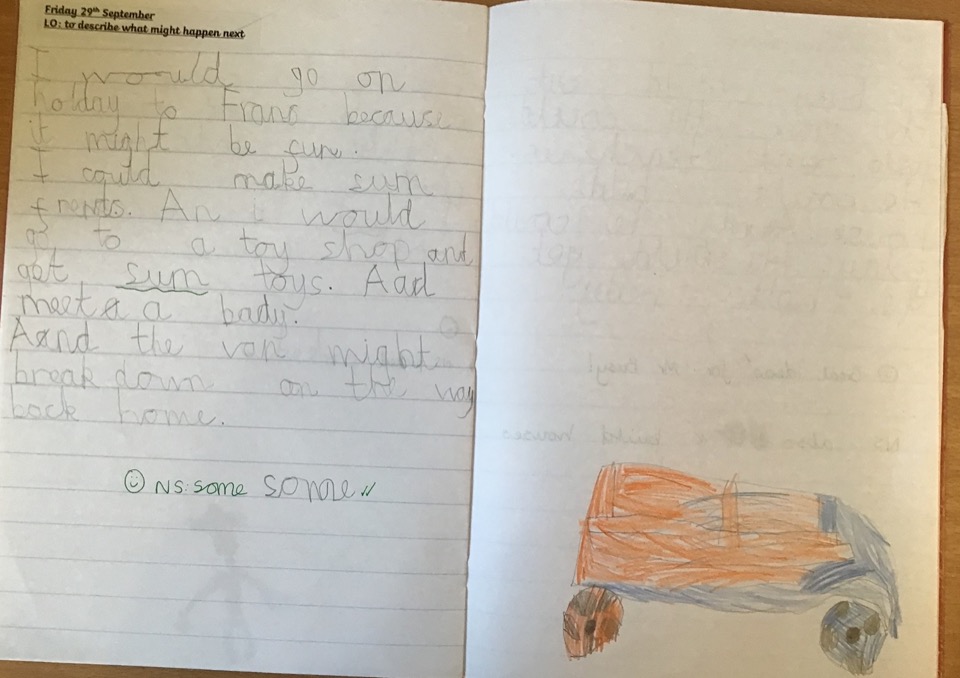 Friday 29th September
LO: to describe what might happen next
I would go on
holday to Frans because
it might be fun.
I could make sum
frents. An I would
go to a toy shop and
get sum toys. Aad
meet a a bady.
Aand the van might
break down on the way
back home.
☺ NS: some some